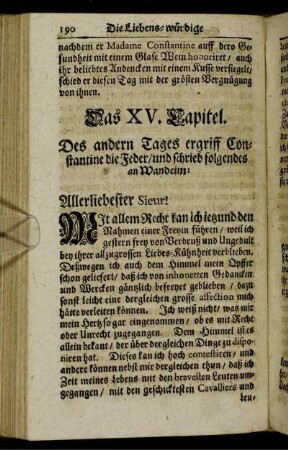 190 Die Liebens-würdige
nachdem er Madame Constantine auff dero Ge-
sundheit mit einem Glase Wein honoriret / auch
ihr beliebtes Andencken mit einem Kusse versiegelt /
schied er diesen Tag mit der grösten Vergnügung
von ihnen.
Das XV. Capitel.
Des andern Tages ergriff Con-
stantine die Feder / und schrieb folgendes
an Wandeim:
Allerliebester Sieur!
MIt allem Recht kan ich ietzund den
Nahmen einer Freyin führen / weil ich
gestern frey von Verdruß und Ungedult
bey ihrer allzugrossen Liebes-Kühnheit verblieben.
Deßwegen ich auch dem Himmel mein Opffer
schon geliefert / daß ich von inhonetten Gedancken
und Wercken gäntzlich befreyet geblieben / dazu
sonst leicht eine dergleichen grosse affection mich
hätte verleiten können. Ich weiß nicht / was mit
mein Hertz so gar eingenommen / ob es mit Recht
oder Unrecht zugegangen. Dem Himmel ist es
allein bekant / der über dergleichen Dinge zu dispo-
niren hat. Dieses kan ich hoch contestiren / und
andere können nebst mir dergleichen thun / daß ich
Zeit meines Lebens mit den bravesten Leuten um-
gegangen / mit den geschicktesten Cavalliers und
Leu-